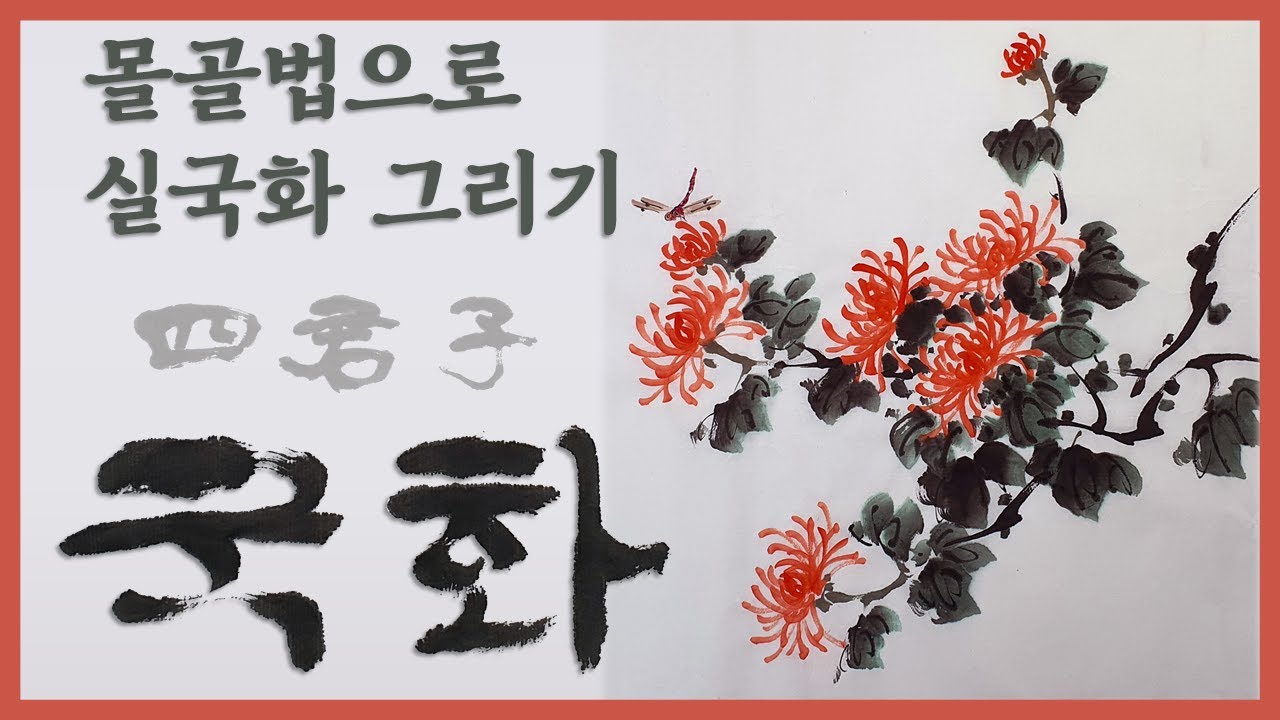 몰골법으로
실국화 그리기
四君子
국화